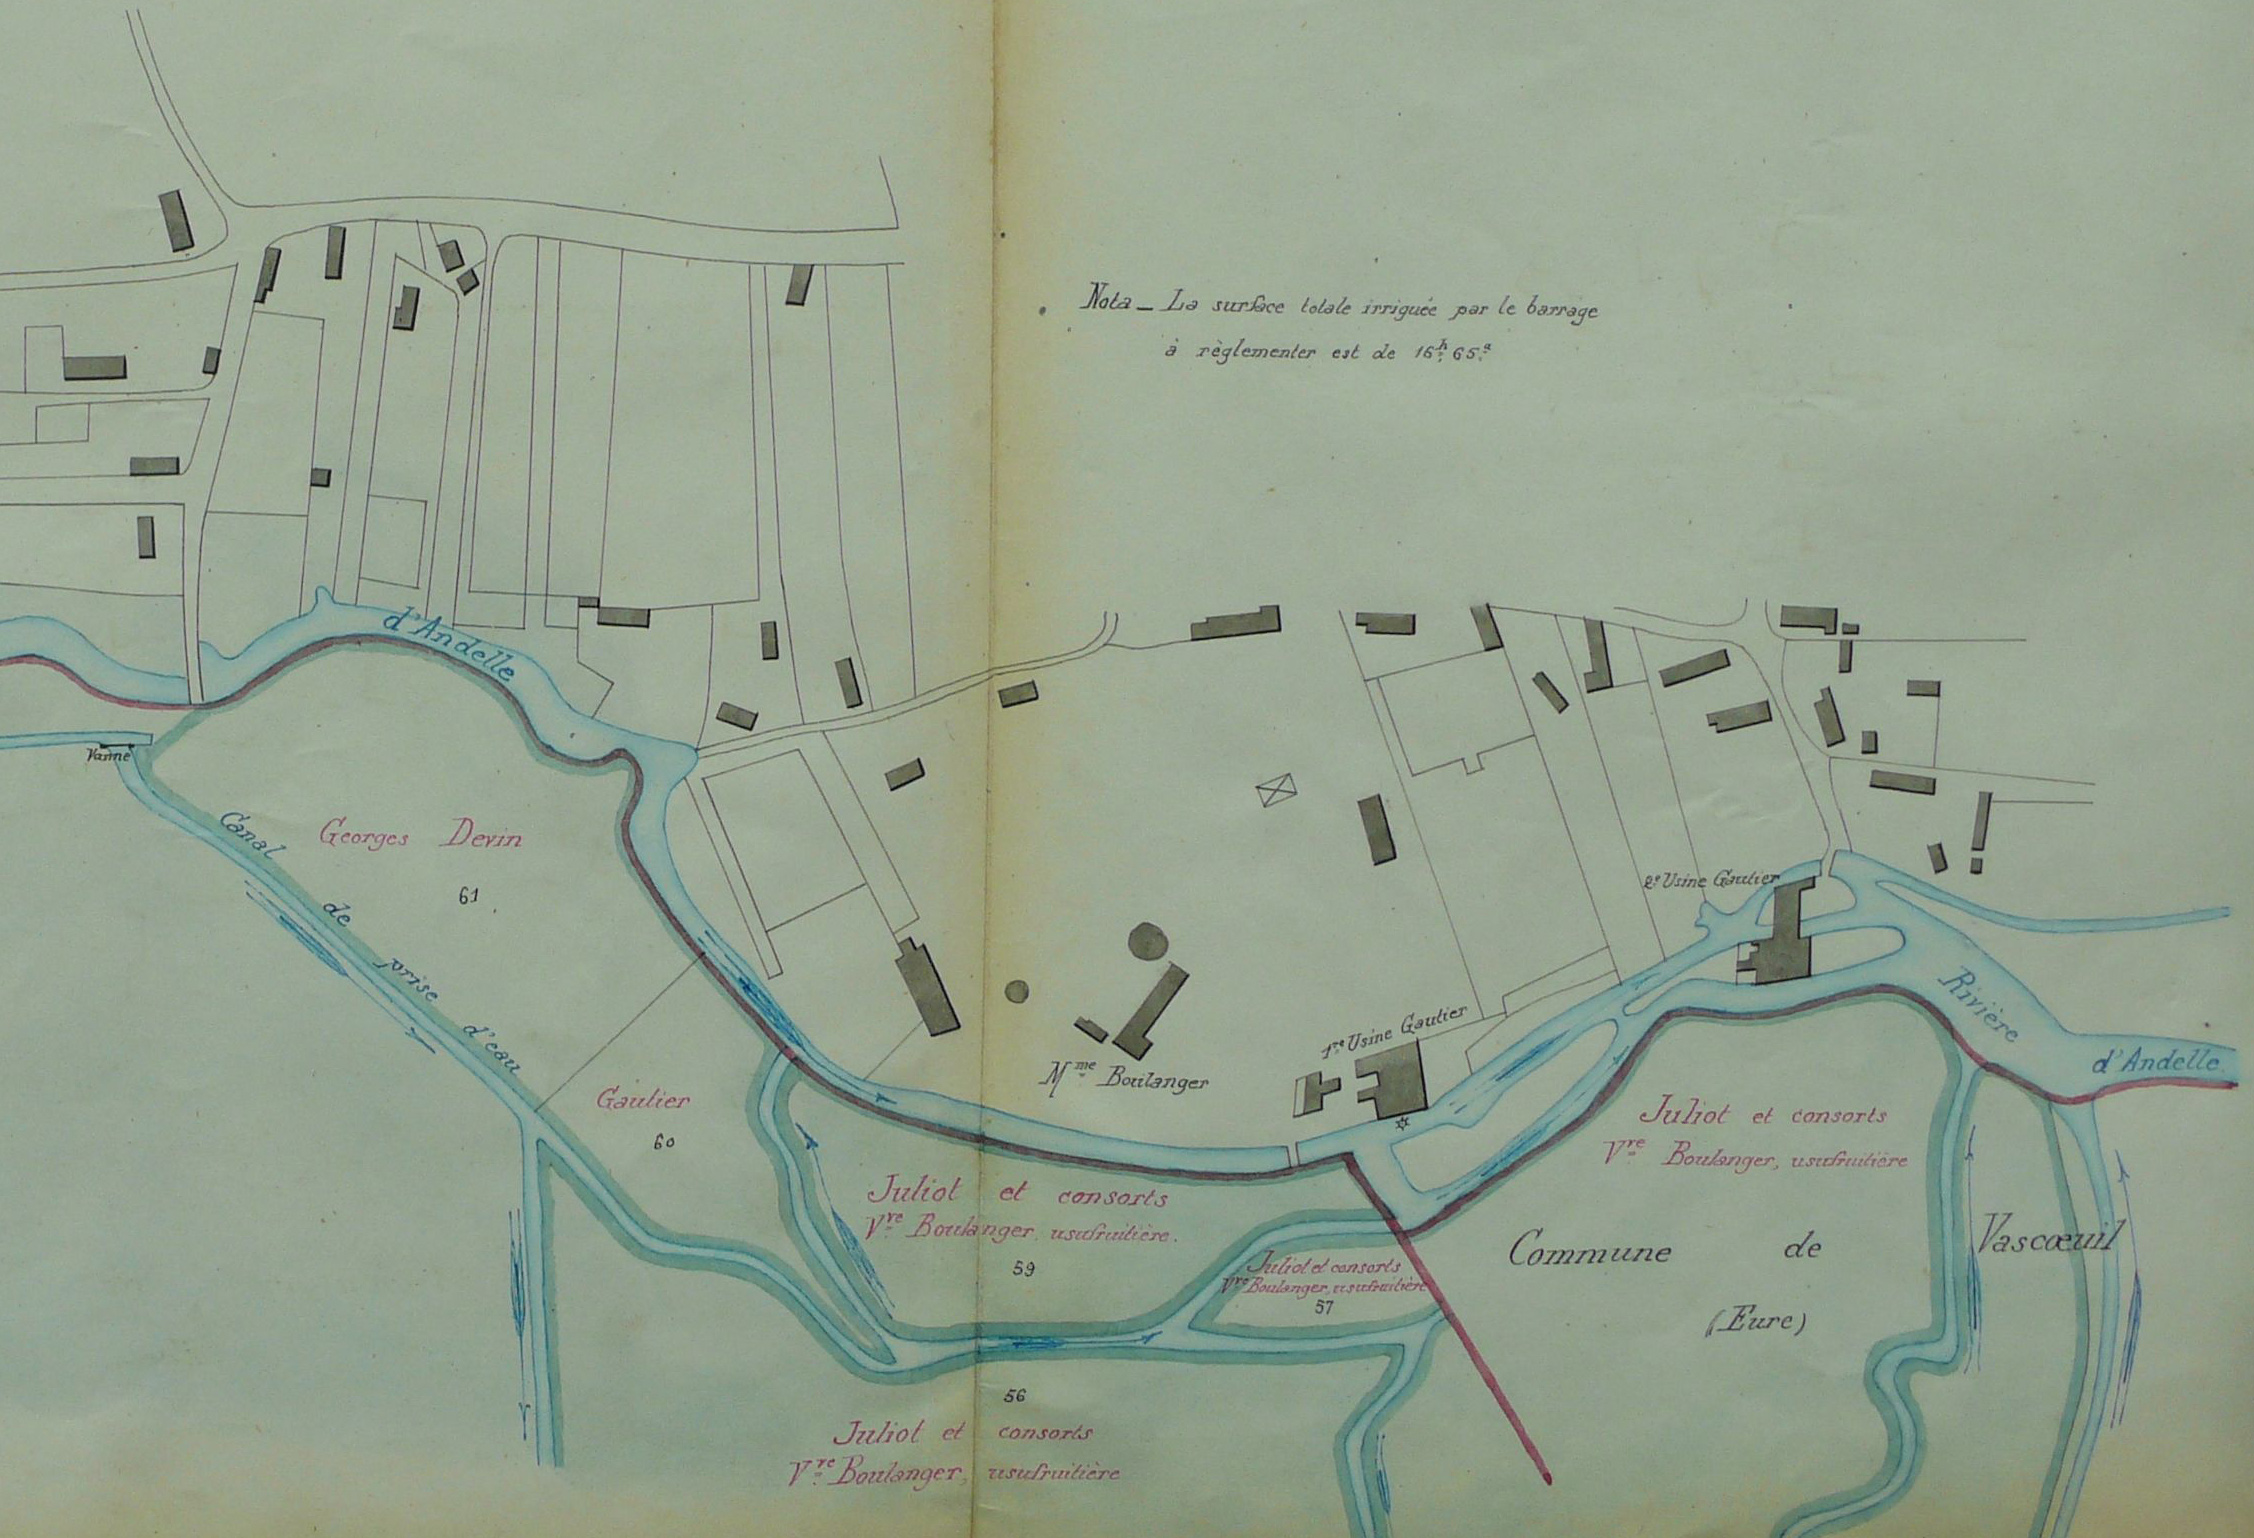 Nota - La surface totale irriguée par le barrage
à règlementer est de 16h. 65a.
d'Andelle
Vanne
Canal de prise d'eau
Georges Devin
61
Gautier
60
Mme Boulanger
1re Usine Gautier
2e Usine Gautier
Rivière
d'Andelle
Juliot et consorts
Vve Boulanger, usufruitière.
59
Juliot et consorts
Vve Boulanger, usufruitière
57
Juliot et consorts
Vve Boulanger, usufruitière
Commune de Vascœuil
(Eure)
56
Juliot et consorts
Vve Boulanger, usufruitière